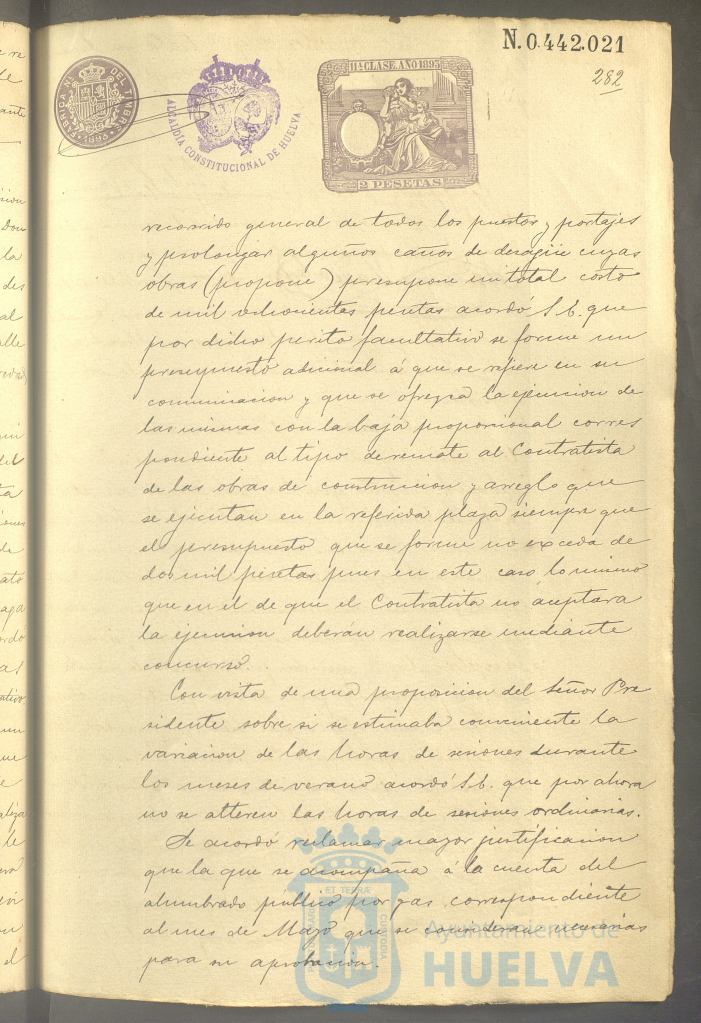 N.0.442.021
282
11ª CLASE. AÑO 1893
2 PESETAS
ALCALDIA CONSTITUCIONAL DE HUELVA
DEL TIMBRE
1893
recorrido general de todos los puestos y portajes
y prolongar algunos caños de desagüe cuyas
obras (propone) presupone un total costo
de mil ochocientas pesetas acordó S.E. que
por dicho perito facultativo se forme un
presupuesto adicional á que se refiere en su
comunicacion y que se ofrezca la ejecucion de
las mismas con la baja proporcional corres
pondiente al tipo de remate al Contratista
de las obras de construccion y arreglo que
se ejecutan en la referida plaza siempre que
el presupuesto que se forme no exceda de
dos mil pesetas pues en este caso lo mismo
que en el de que el Contratista no aceptara
la ejecucion deberán realizarse mediante
concurso.
Con vista de una proposicion del Señor Pre
sidente sobre si se estimaba conveniente la
variacion de las horas de sesiones durante
los meses de verano acordó S.E. que por ahora
no se alteren las horas de sesiones ordinarias.
Se acordó reclamar mayor justificacion
que la que se acompaña á la cuenta del
alumbrado publico por gas correspondiente
al mes de Mayo que se consideran necesarias
para su aprobacion.
ET TERRÆ
CUSTODIA
Ayuntamiento de
HUELVA